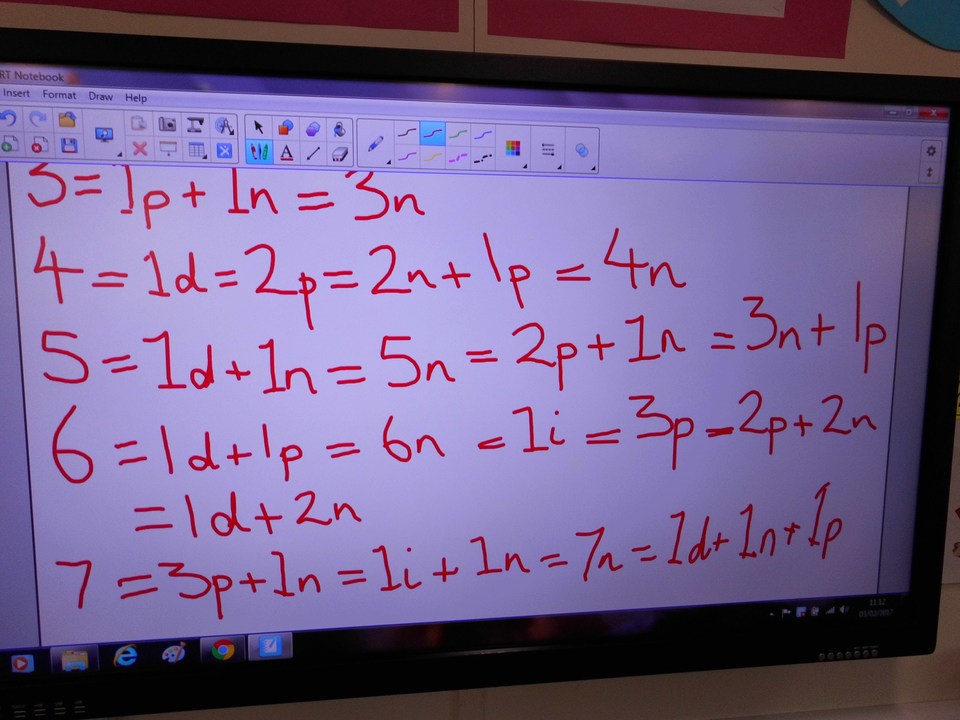 RT Notebook
Insert Format Draw Help
3 = 1p + 1n = 3n
4 = 1d = 2p = 2n + 1p = 4n
5 = 1d + 1n = 5n = 2p + 1n = 3n + 1p
6 = 1d + 1p = 6n = 1i = 3p = 2p + 2n
= 1d + 2n
7 = 3p + 1n = 1i + 1n = 7n = 1d + 1n + 1p
11:12